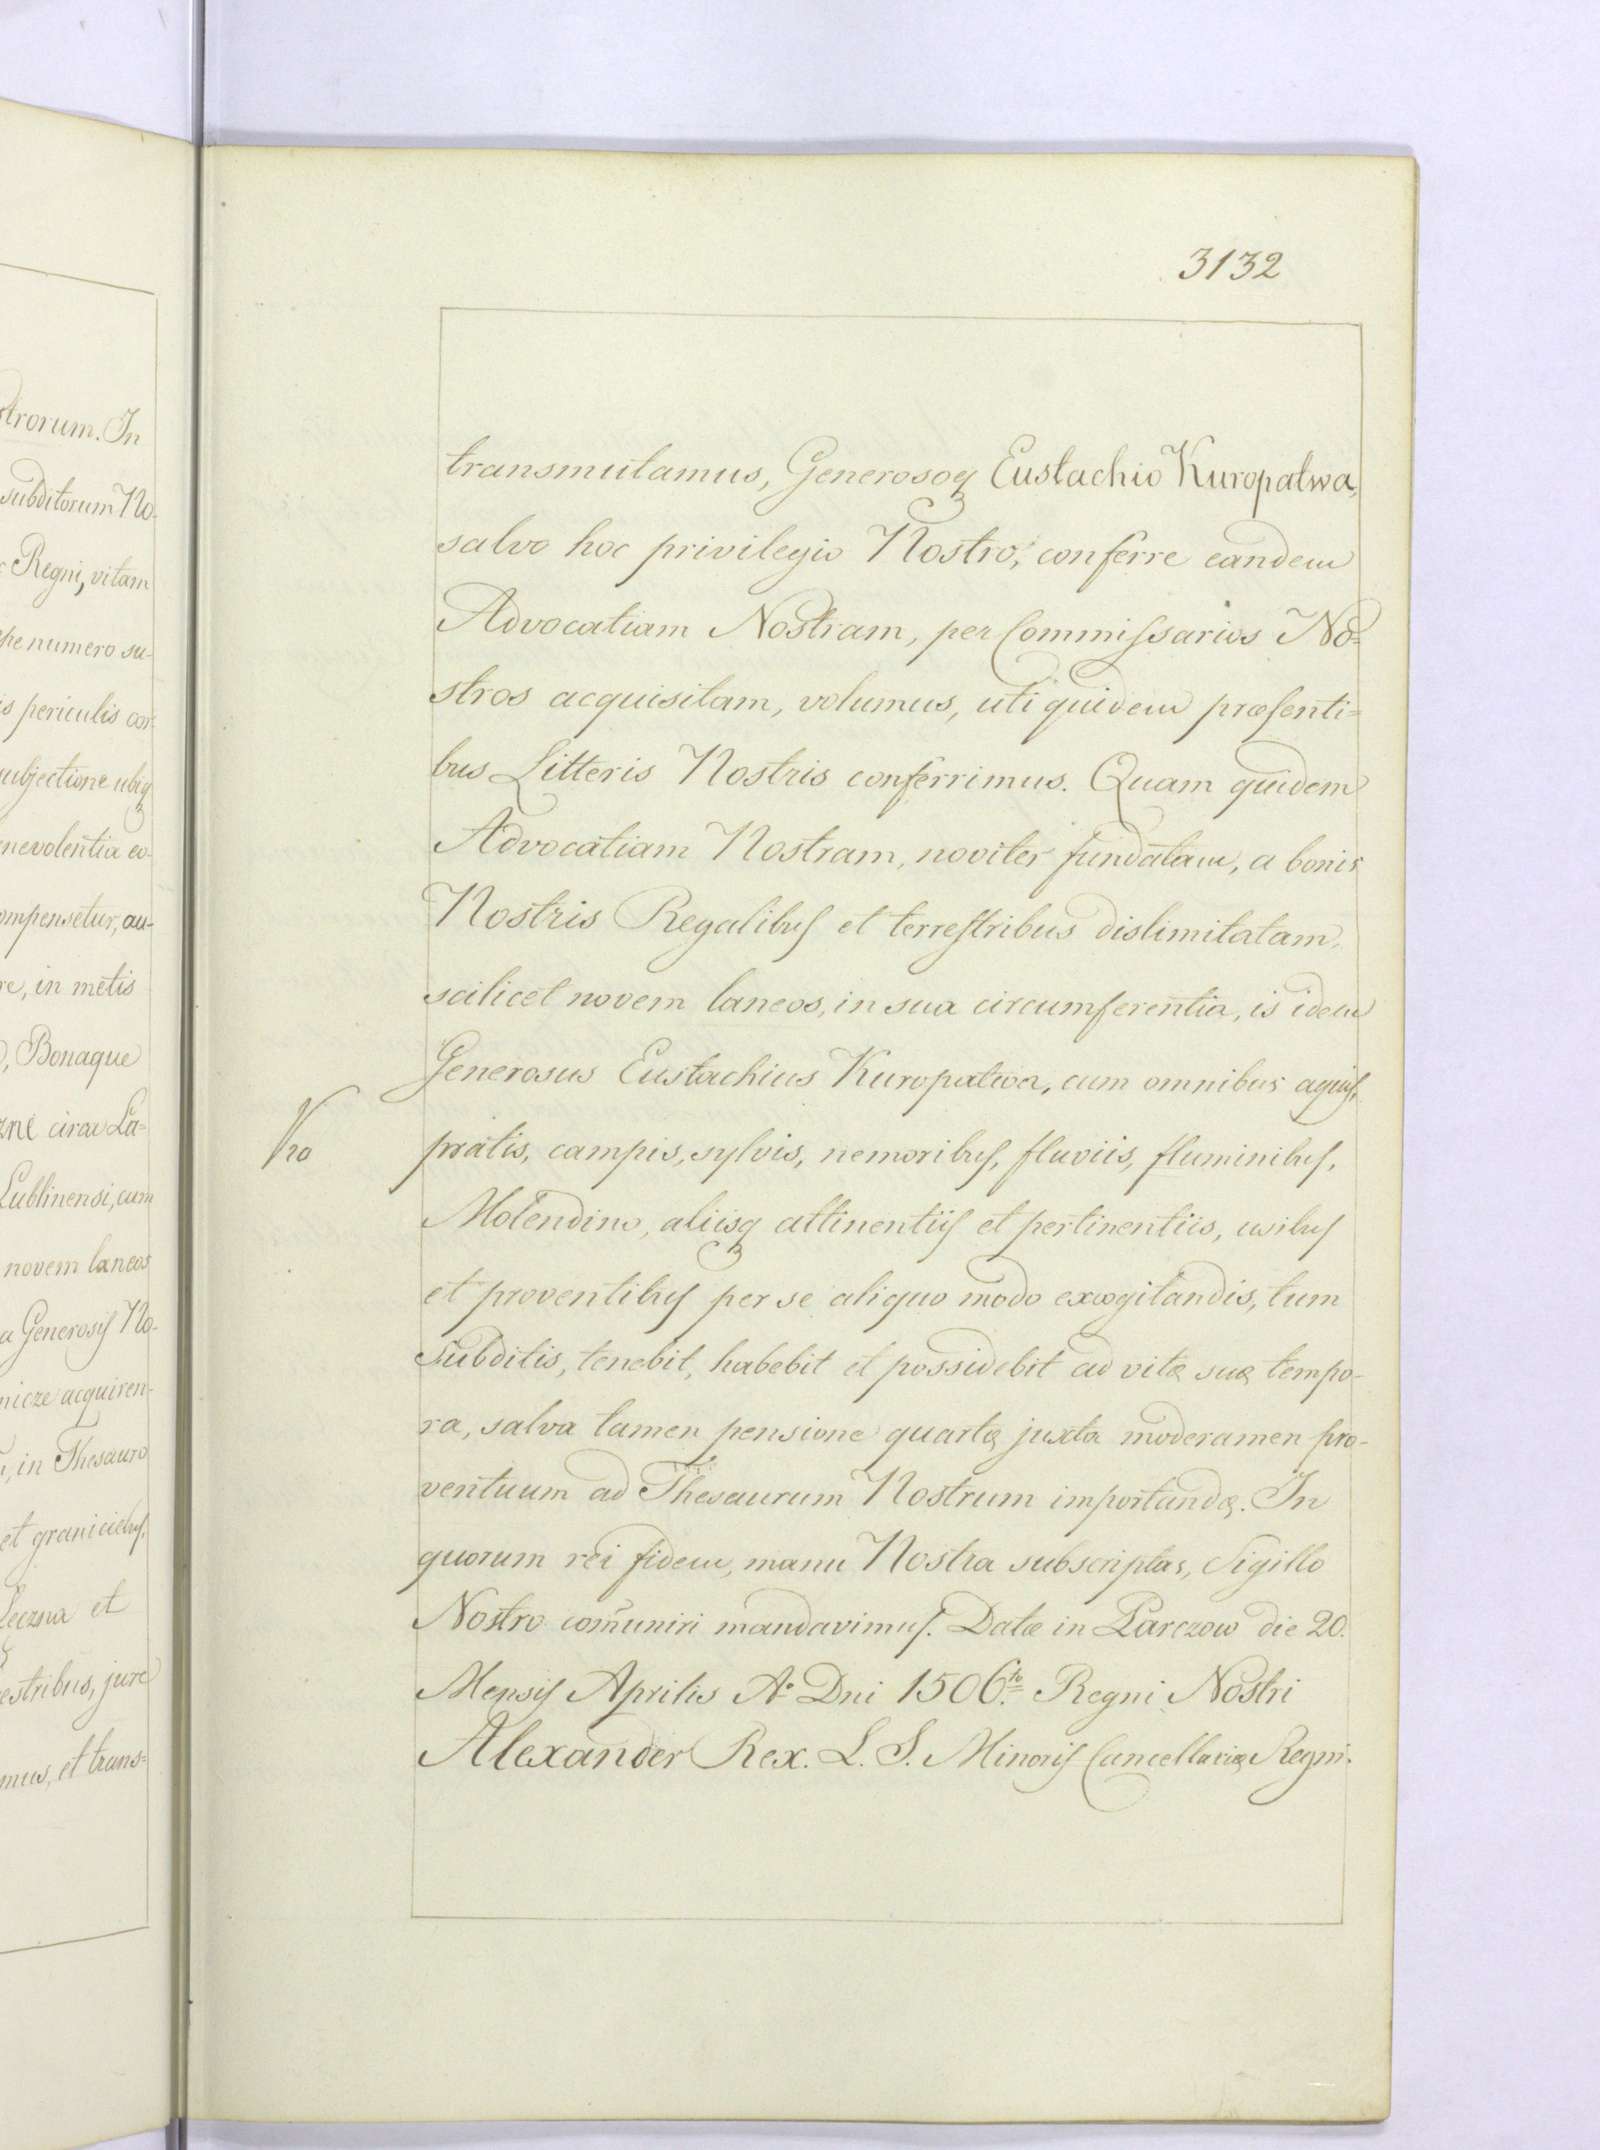 3132
trorum. In
subditorum No-
Regni, vitam
pe numero su-
is periculis cor-
ubjectione ubiq
nevolentia eo-
ompensetur, au-
re, in metis
, Bonaque
zne circa La-
Lublinensi, cum
novem laneos
a Generosis No-
nicze acquiren-
, in Thesauro
et graniciebus,
Leczna et
estribus, jure
mus, et trans-
transmutamus, Generosoq Eustachio Kuropatwa,
salvo hoc privilegio Nostro, conferre eandem
Advocatiam Nostram, per Commissarios No=
stros acquisitam, volumus, uti quidem præsenti=
bus Litteris Nostris conferrimus. Quam quidem
Advocatiam Nostram, noviter fundatam, a bonis
Nostris Regalibus et terrestribus dislimitatam,
scilicet novem laneos, in sua circumferentia, is idem
Generosus Eustachius Kuropatwa, cum omnibus aquis,
pratis, campis, sylvis, nemoribus, fluviis, fluminibus,
Molendino, aliisq attinentiis et pertinentiis, usibus
et proventibus per se aliquo modo excogitandis, tum
Subditis, tenebit, habebit et possidebit ad vitæ suæ tempo-
ra, salva tamen pensione quartæ juxta moderamen pro-
ventuum ad Thesaurum Nostrum importandæ. In
quorum rei fidem, manu Nostra subscriptas, Sigillo
Nostro com̃uniri mandavimus. Datæ in Parczow die 20.
Mensis Aprilis Aº Dni 1506.to Regni Nostri
Alexander Rex. L. S. Minoris Cancellariæ Regni.